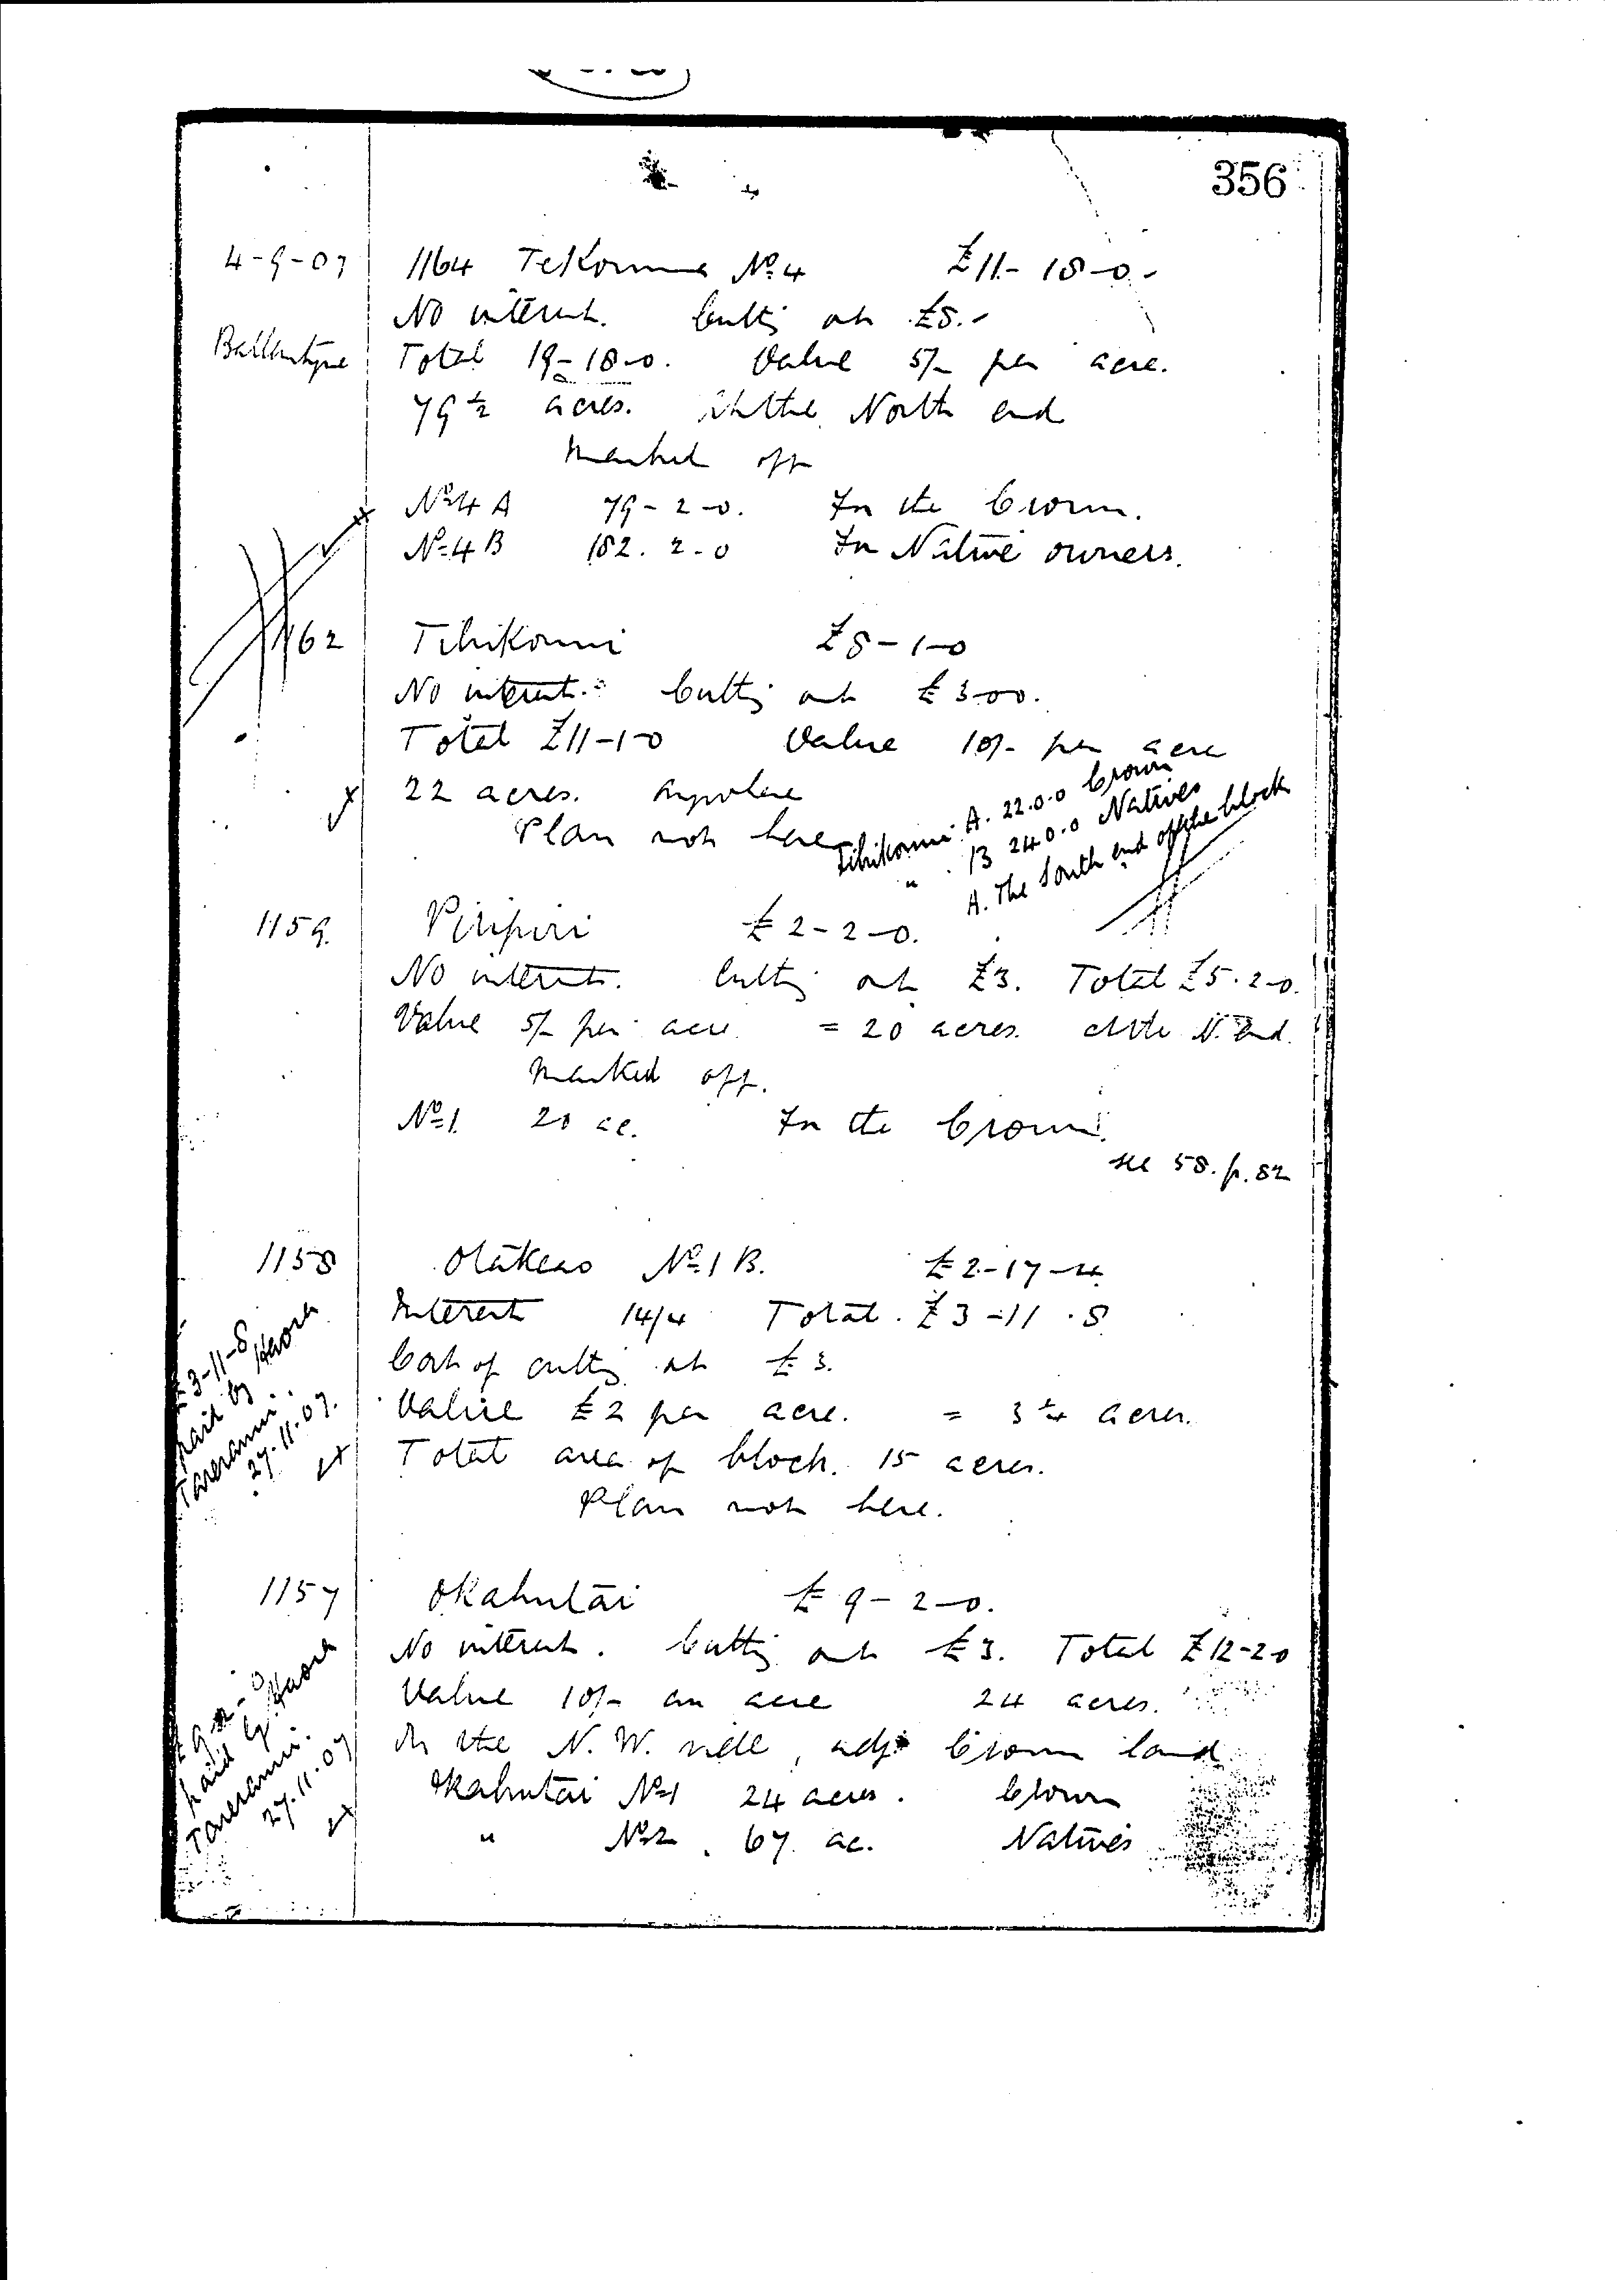 356
4-9-07 1164 Te Kouma No. 4 £11-18-0.-
No interest. Cutting out £8.-
Ballantyne Total 19-18-0. Value 5/- per acre.
79½ acres. At the North end
Marked off
No. 4 A 79-2-0. In the Crown.
No. 4 B 182.2-0 In Native owners.
1162 Tihikouri £8-1-0
No interest. Cutting out £3-0-0.
Total £11-1-0 Value 10/- per acre
22 acres. Anywhere
Plan not here
Tihikouri A. 22.0.0 Crown
" B 240.0 Natives
A. The South end of the block
1159. Piripiri £2-2-0.
No interest. Cutting out £3. Total £5.2-0.
Value 5/- per acre = 20 acres. At the N. End.
Marked off.
No. 1. 20 ac. In the Crown.
see 58. p. 82
1158 Otakeao No. 1 B. £2-17-4
Interest 14/4 Total. £3-11.8
Cost of cutting out £3.
Value £2 per acre. = 3¼ acres.
Total area of block. 15 acres.
Plan not here.
£3-11-8
paid by Haora
Tareranui.
27.11.07.
1157 Okahutai £9-2-0.
No interest. Cutting out £3. Total £12-2-0
Value 10/- an acre 24 acres.
On the N. W. side, adjg Crown land
Okahutai No. 1 24 acres. Crown
" No. 2. 67. ac. Natives
£9-2-0
paid by Haora
Tareranui.
27.11.07